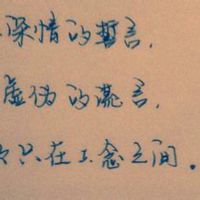 深情的誓言,
虚伪的谎言,
只在一念之间.